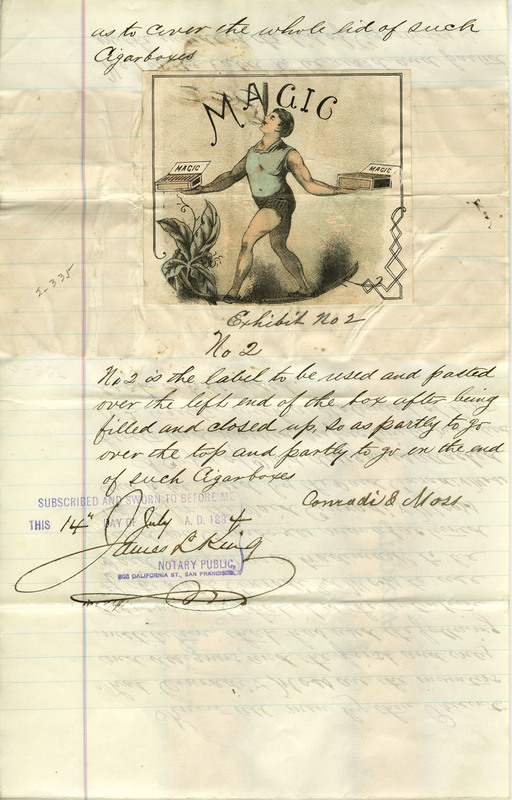 as to cover the whole lid of such
Cigarboxes
MAGIC
MAGIC
MAGIC
2-335
Exhibit No 2
No 2
No 2 is the label to be used and pasted
over the left end of the box after being
filled and closed up, so as partly to go
over the top and partly to go on the end
of such Cigarboxes
Conradi & Moss
SUBSCRIBED AND SWORN TO BEFORE ME
THIS 14" DAY OF July A. D. 1884
James L King
NOTARY PUBLIC,
CALIFORNIA ST., SAN FRANCISCO.